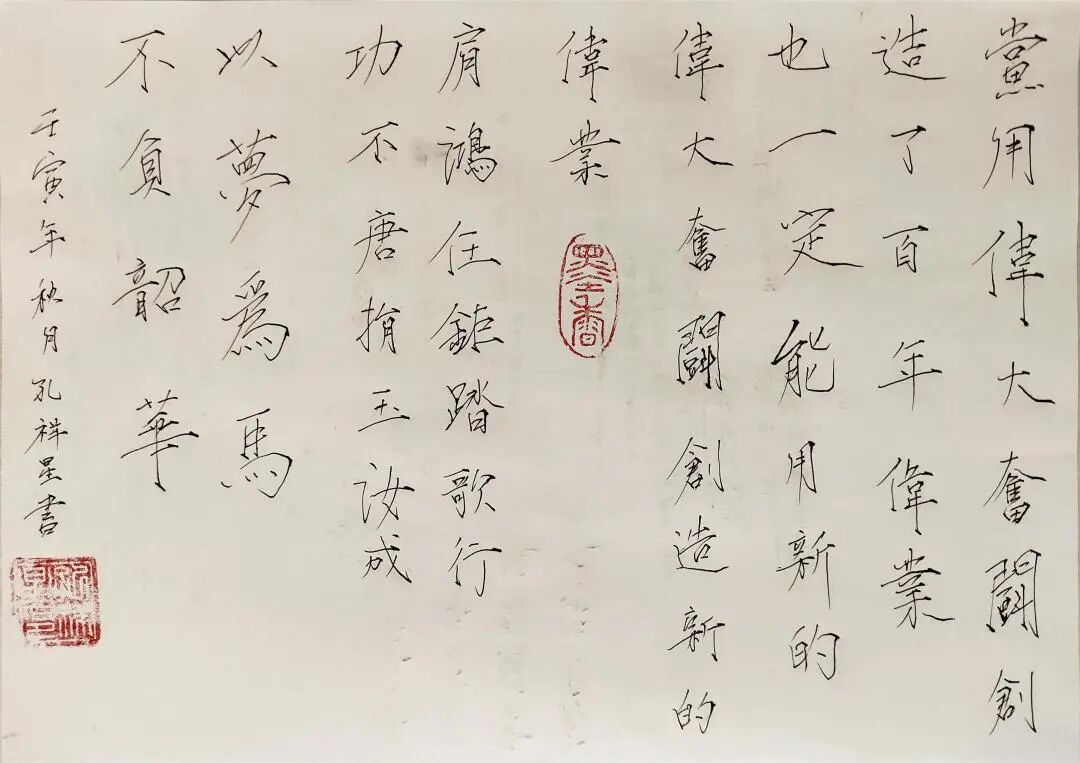 黨用偉大奮鬪創
造了百年偉業
也一定能用新的
偉大奮鬪創造新的
偉業
墨香
肩鴻任鉅踏歌行
功不唐捐玉汝成
以夢為馬
不負韶華
壬寅年秋月孔祥星書